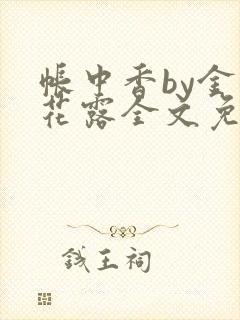 帐中香by金
花露全文免
钱王祠